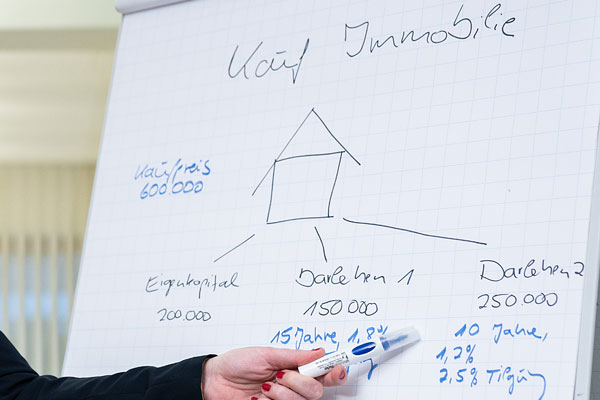 Kauf Immobilie
Kaufpreis
600.000
Eigenkapital
200.000
Darlehen 1
150.000
15 Jahre, 1,8%
Darlehen 2
250.000
10 Jahre,
1,2%
2,5% Tilgung